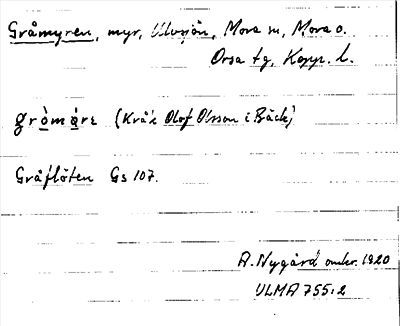 Gråmyren, myr, Ulvsjön, Mora sn, Mora o.
Orsa tg, Kopp. l.
gròmɑ̀rɛ (Kråk Olof Olsson i Bäck)
Gråflöten Gs 107.
A. Nygård omkr. 1920
ULMA 755:2